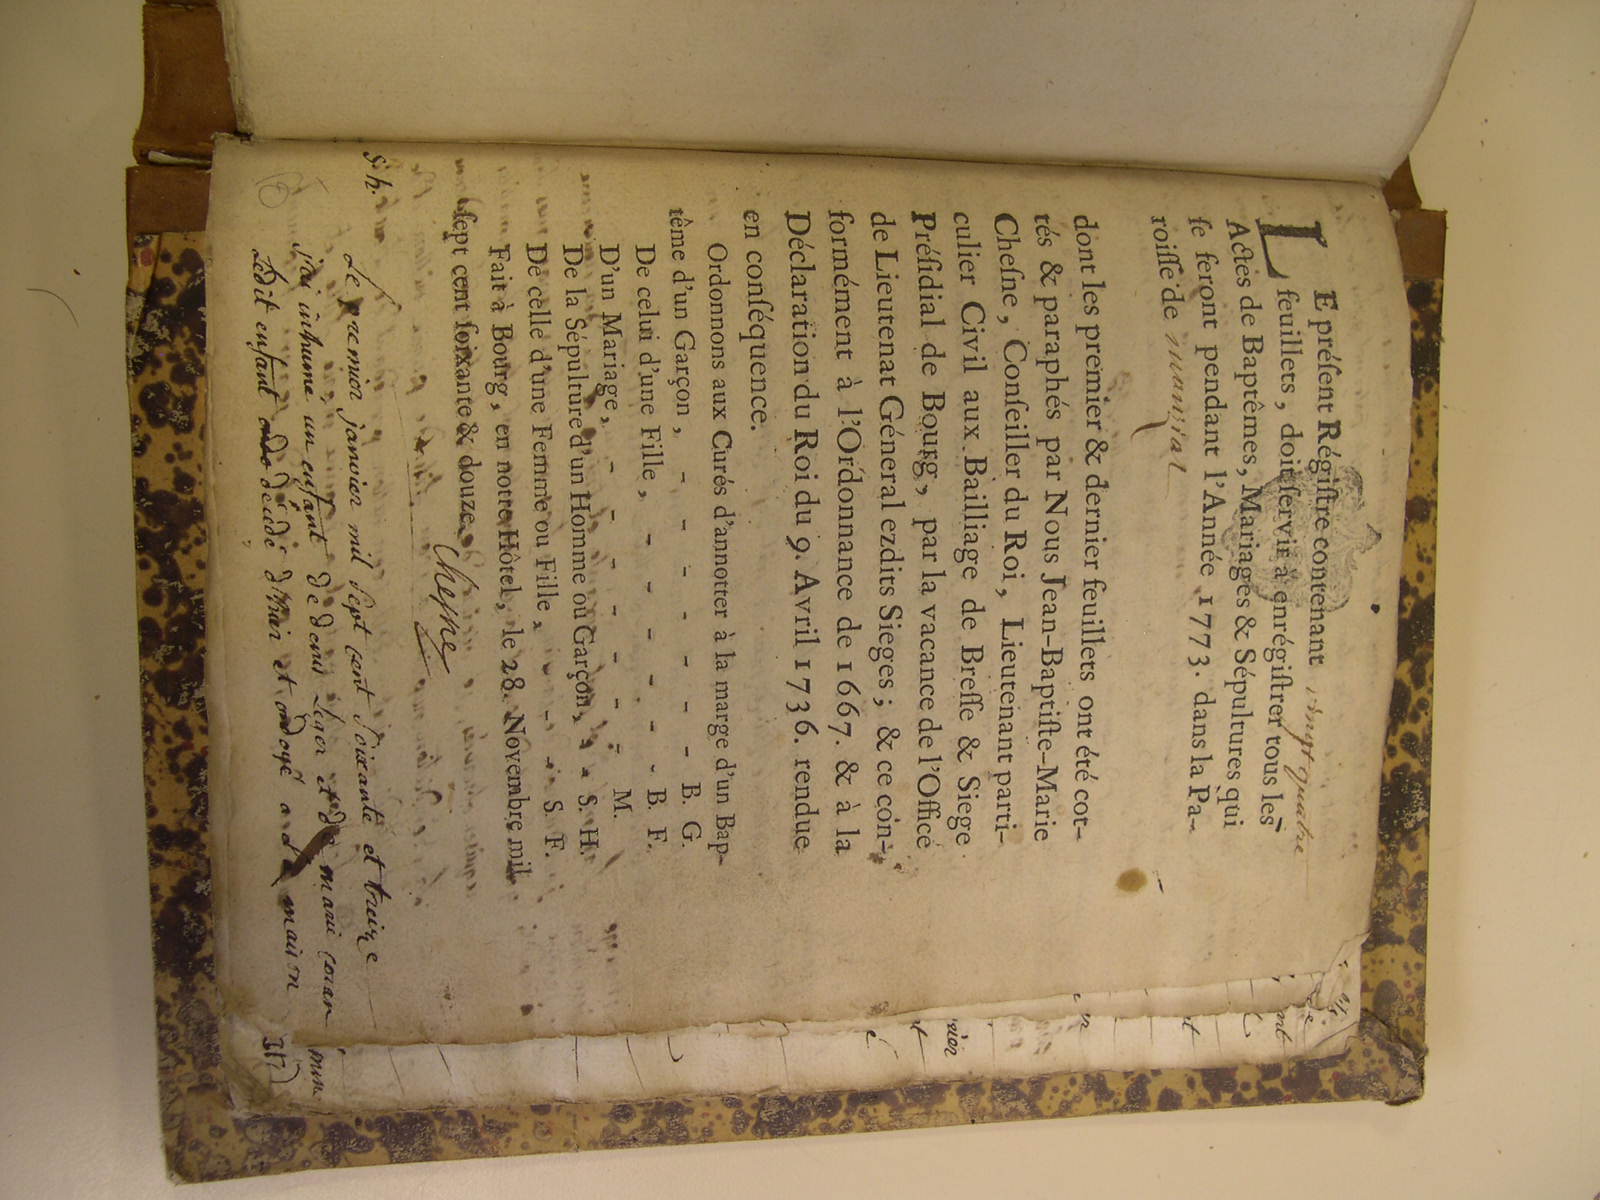 LE préſent Régiſtre contenant vingt quatre
feuillets, doit ſervir à enrégiſtrer tous les
Actes de Baptêmes, Mariages & Sépultures qui
ſe feront pendant l'Année 1773. dans la Pa-
roiſſe de
dont les premier & dernier feuillets ont été cot-
tés & paraphés par Nous Jean-Baptiſte-Marie
Cheſne, Conſeiller du Roi, Lieutenant parti-
culier Civil aux Bailliage de Breſſe & Siege
Préſidial de Bourg, par la vacance de l'Office
de Lieutenat Géneral ezdits Sieges; & ce con-
formément à l'Ordonnance de 1667. & à la
Déclaration du Roi du 9. Avril 1736. rendue
en conſéquence.
Ordonnons aux Curés d'annotter à la marge d'un Bap-
tême d'un Garçon, - - - - - - B. G.
De celui d'une Fille, - - - - - - B. F.
D'un Mariage, - - - - - - - M.
De la Sépulture d'un Homme ou Garçon, - - S. H.
De celle d'une Femme ou Fille, - - - - S. F.
Fait à Bourg, en notre Hôtel, le 28. Novembre mil
ſept cent ſoixante & douze.
Chesne
S. h.
Le premier janvier mil sept cent soixante et treize
j'ai inhumé un enfant de denis Leger et de marie
Ledit enfant décédé d'hier et ondoyé a la maison